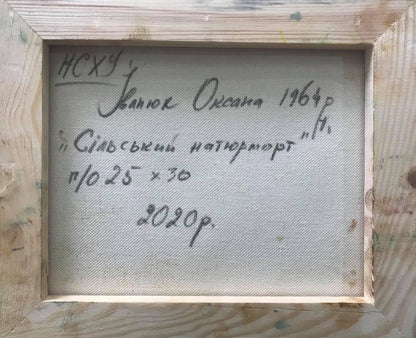 НСХУ
Івлюк Оксана 1964 р
н.
„Сільський натюрморт"
п/о 25 х 30
2020р.